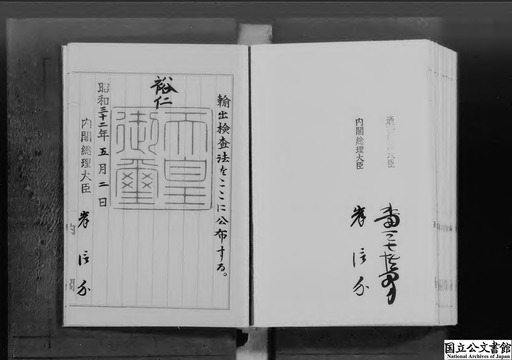 輸出検査法をここに公布する。
裕仁
天皇御璽
昭和三十二年五月二日
内閣総理大臣 岸信介
通商産業大臣
内閣総理大臣 岸信介
国立公文書館
National Archives of Japan